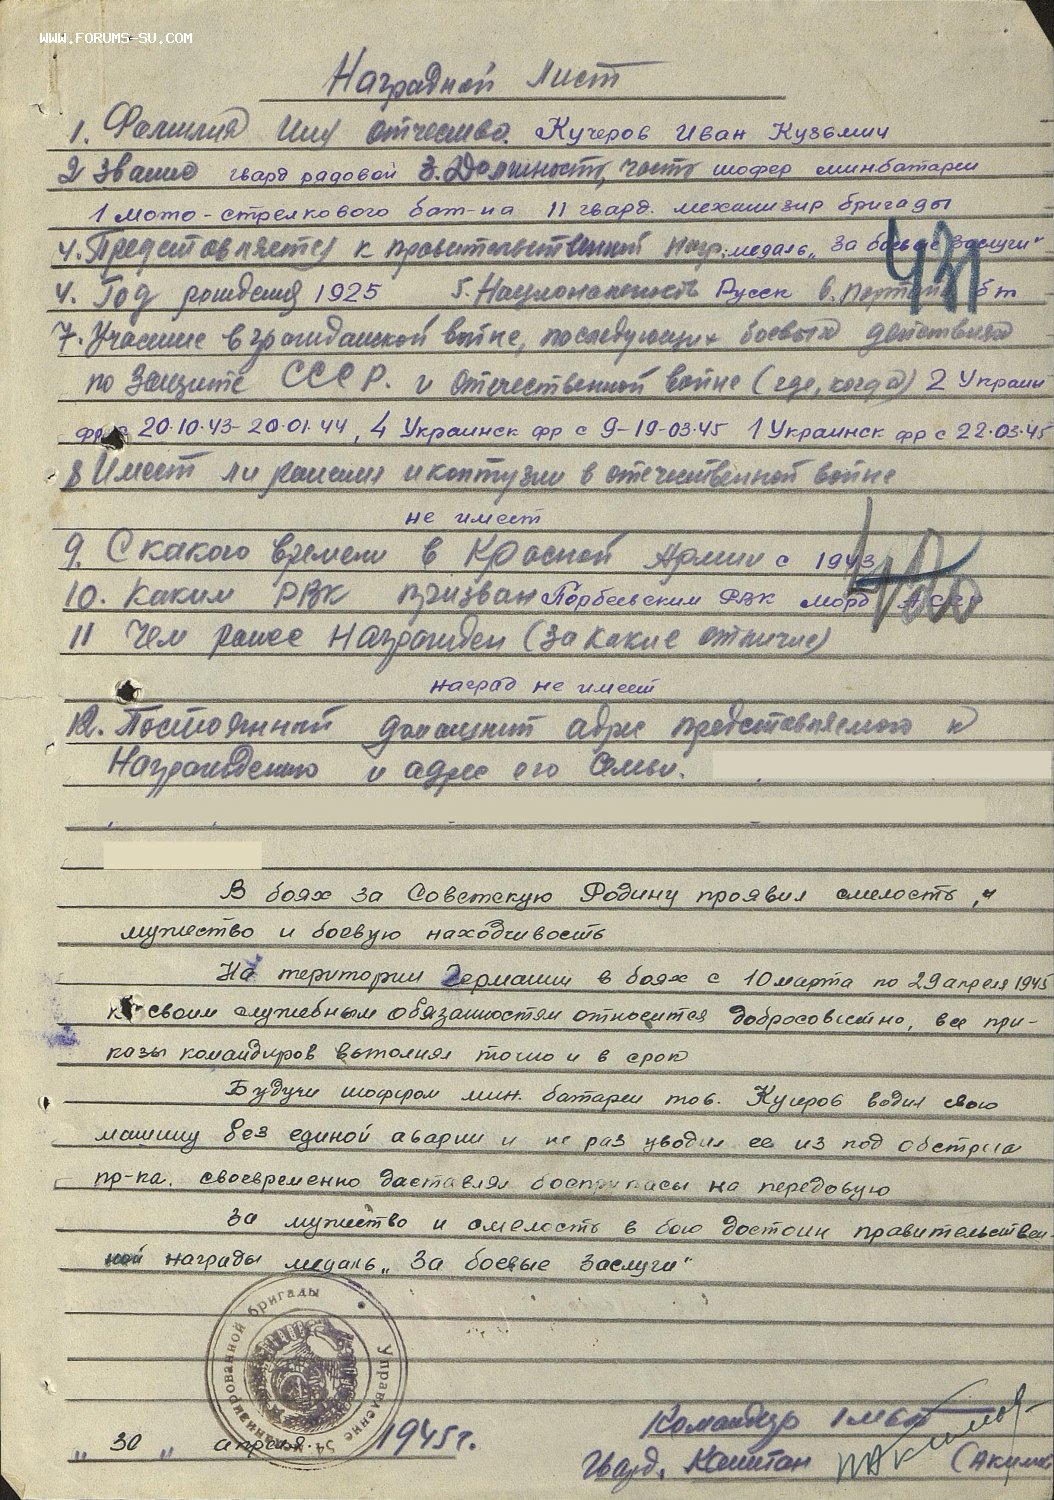 WWW.FORUMS-SU.COM
Наградной Лист
1. Фамилия Имя отчество. Кучеров Иван Кузьмич
2 Звание гвард рядовой 3. Должность, часть шофер минбатареи
1 мото-стрелкового бат-на 11 гвард. механизир бригады
4. Представляется к правительственной нагр. медаль „За боевые заслуги"
4. Год рождения 1925 5. Национальность Русск 6. Партийн б/п
431
7. Участие в гражданской войне, последующих боевых действиях
по защите СССР. и отечественной войне (где, когда) 2 Украин
фр с 20.10.43-20.01.44, 4 Украинск фр с 9-19-03.45 1 Украинск фр с 22.03.45
8 Имеет ли ранения и контузии в отечественной войне
не имеет
9. С какого времени в Красной Армии с 1943
10. Каким РВК призван Торбеевским РВК морд АССР
11 Чем ранее Награжден (за какие отличия)
наград не имеет
12. Постоянный домашний адрес представляемого к
Награждению и адрес его семьи.
В боях за Советскую Родину проявил смелость, и
мужество и боевую находчивость
На територии Германии в боях с 10 марта по 29 апреля 1945
к своим служебным обязанностям относится добросовестно, все при-
казы командиров выполнял точно и в срок
Будучи шофером мин. батареи тов. Кучеров водил свою
машину без единой аварии и не раз уводил ее из под обстрела
пр-ка. своевременно даставлял боеприпасы на передовую
За мужество и смелость в бою достоин правительствен-
ной награды медаль „За боевые заслуги"
Управление 54 механизированной бригады
„30" апреля 1945 г.
Командир 1 мсб
Гвард. Капитан (Акимов